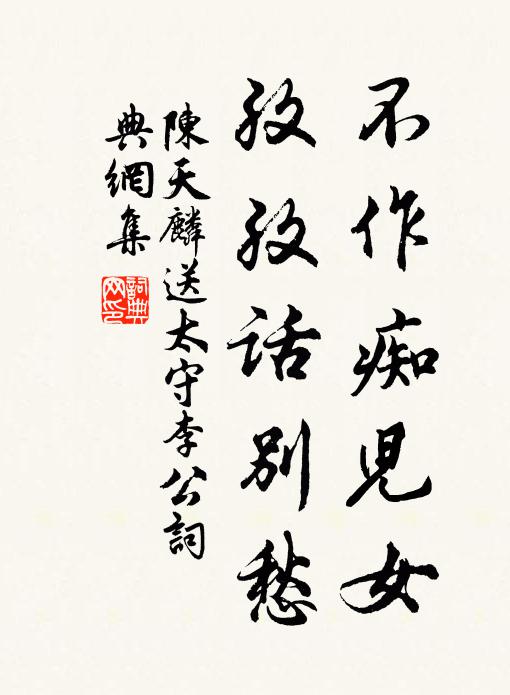 不作痴児女
孜孜話別愁
陳天麟送太守李公詞
典網集
詞典
网印